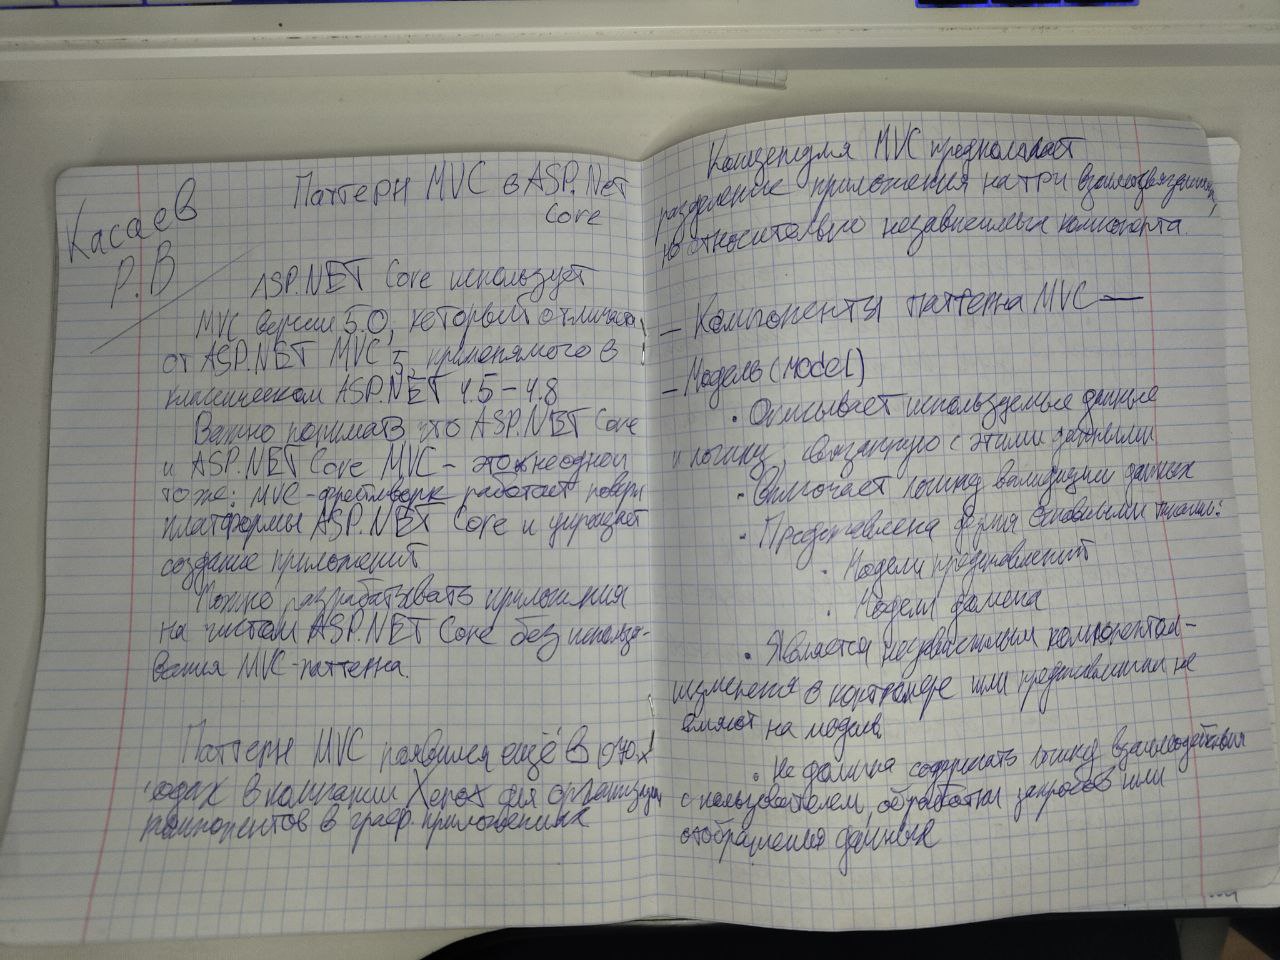 Касаев
Р.В
Паттерн MVC в ASP.Net
Core
ASP.NET Core использует
MVC версии 5.0, который отличается
от ASP.NET MVC 5, применямого в
классическом ASP.NET 4.5-4.8
Важно понимать что ASP.NET Core
и ASP.NET Core MVC - это не одно и
тоже: MVC-фреймворк работает поверх
платформы ASP.NET Core и упрощает
создание приложений
Можно разрабатывать приложения
на чистом ASP.NET Core без использо-
вания MVC-паттерна.
Паттерн MVC появился ещё в 1970-х
годах в компании Xerox для организации
компонентов в граф. приложениях
Концепция MVC предполагает
разделение приложения на три взаимосвязанных,
но относительно независимых компонента.
- Компоненты паттерна MVC -
- Модель (model)
• Описывает используемые данные
и логику, связанную с этими данными
• Включает логику валидации данных
• Представлена двумя основными типами:
• Модели представлений
• Модели домена
• Является независимым компонентом -
изменения в контролере или представлении не
влияют на модель
• Не должна содержать логику взаимодействия
с пользователем, обработки запросов или
отображения данных